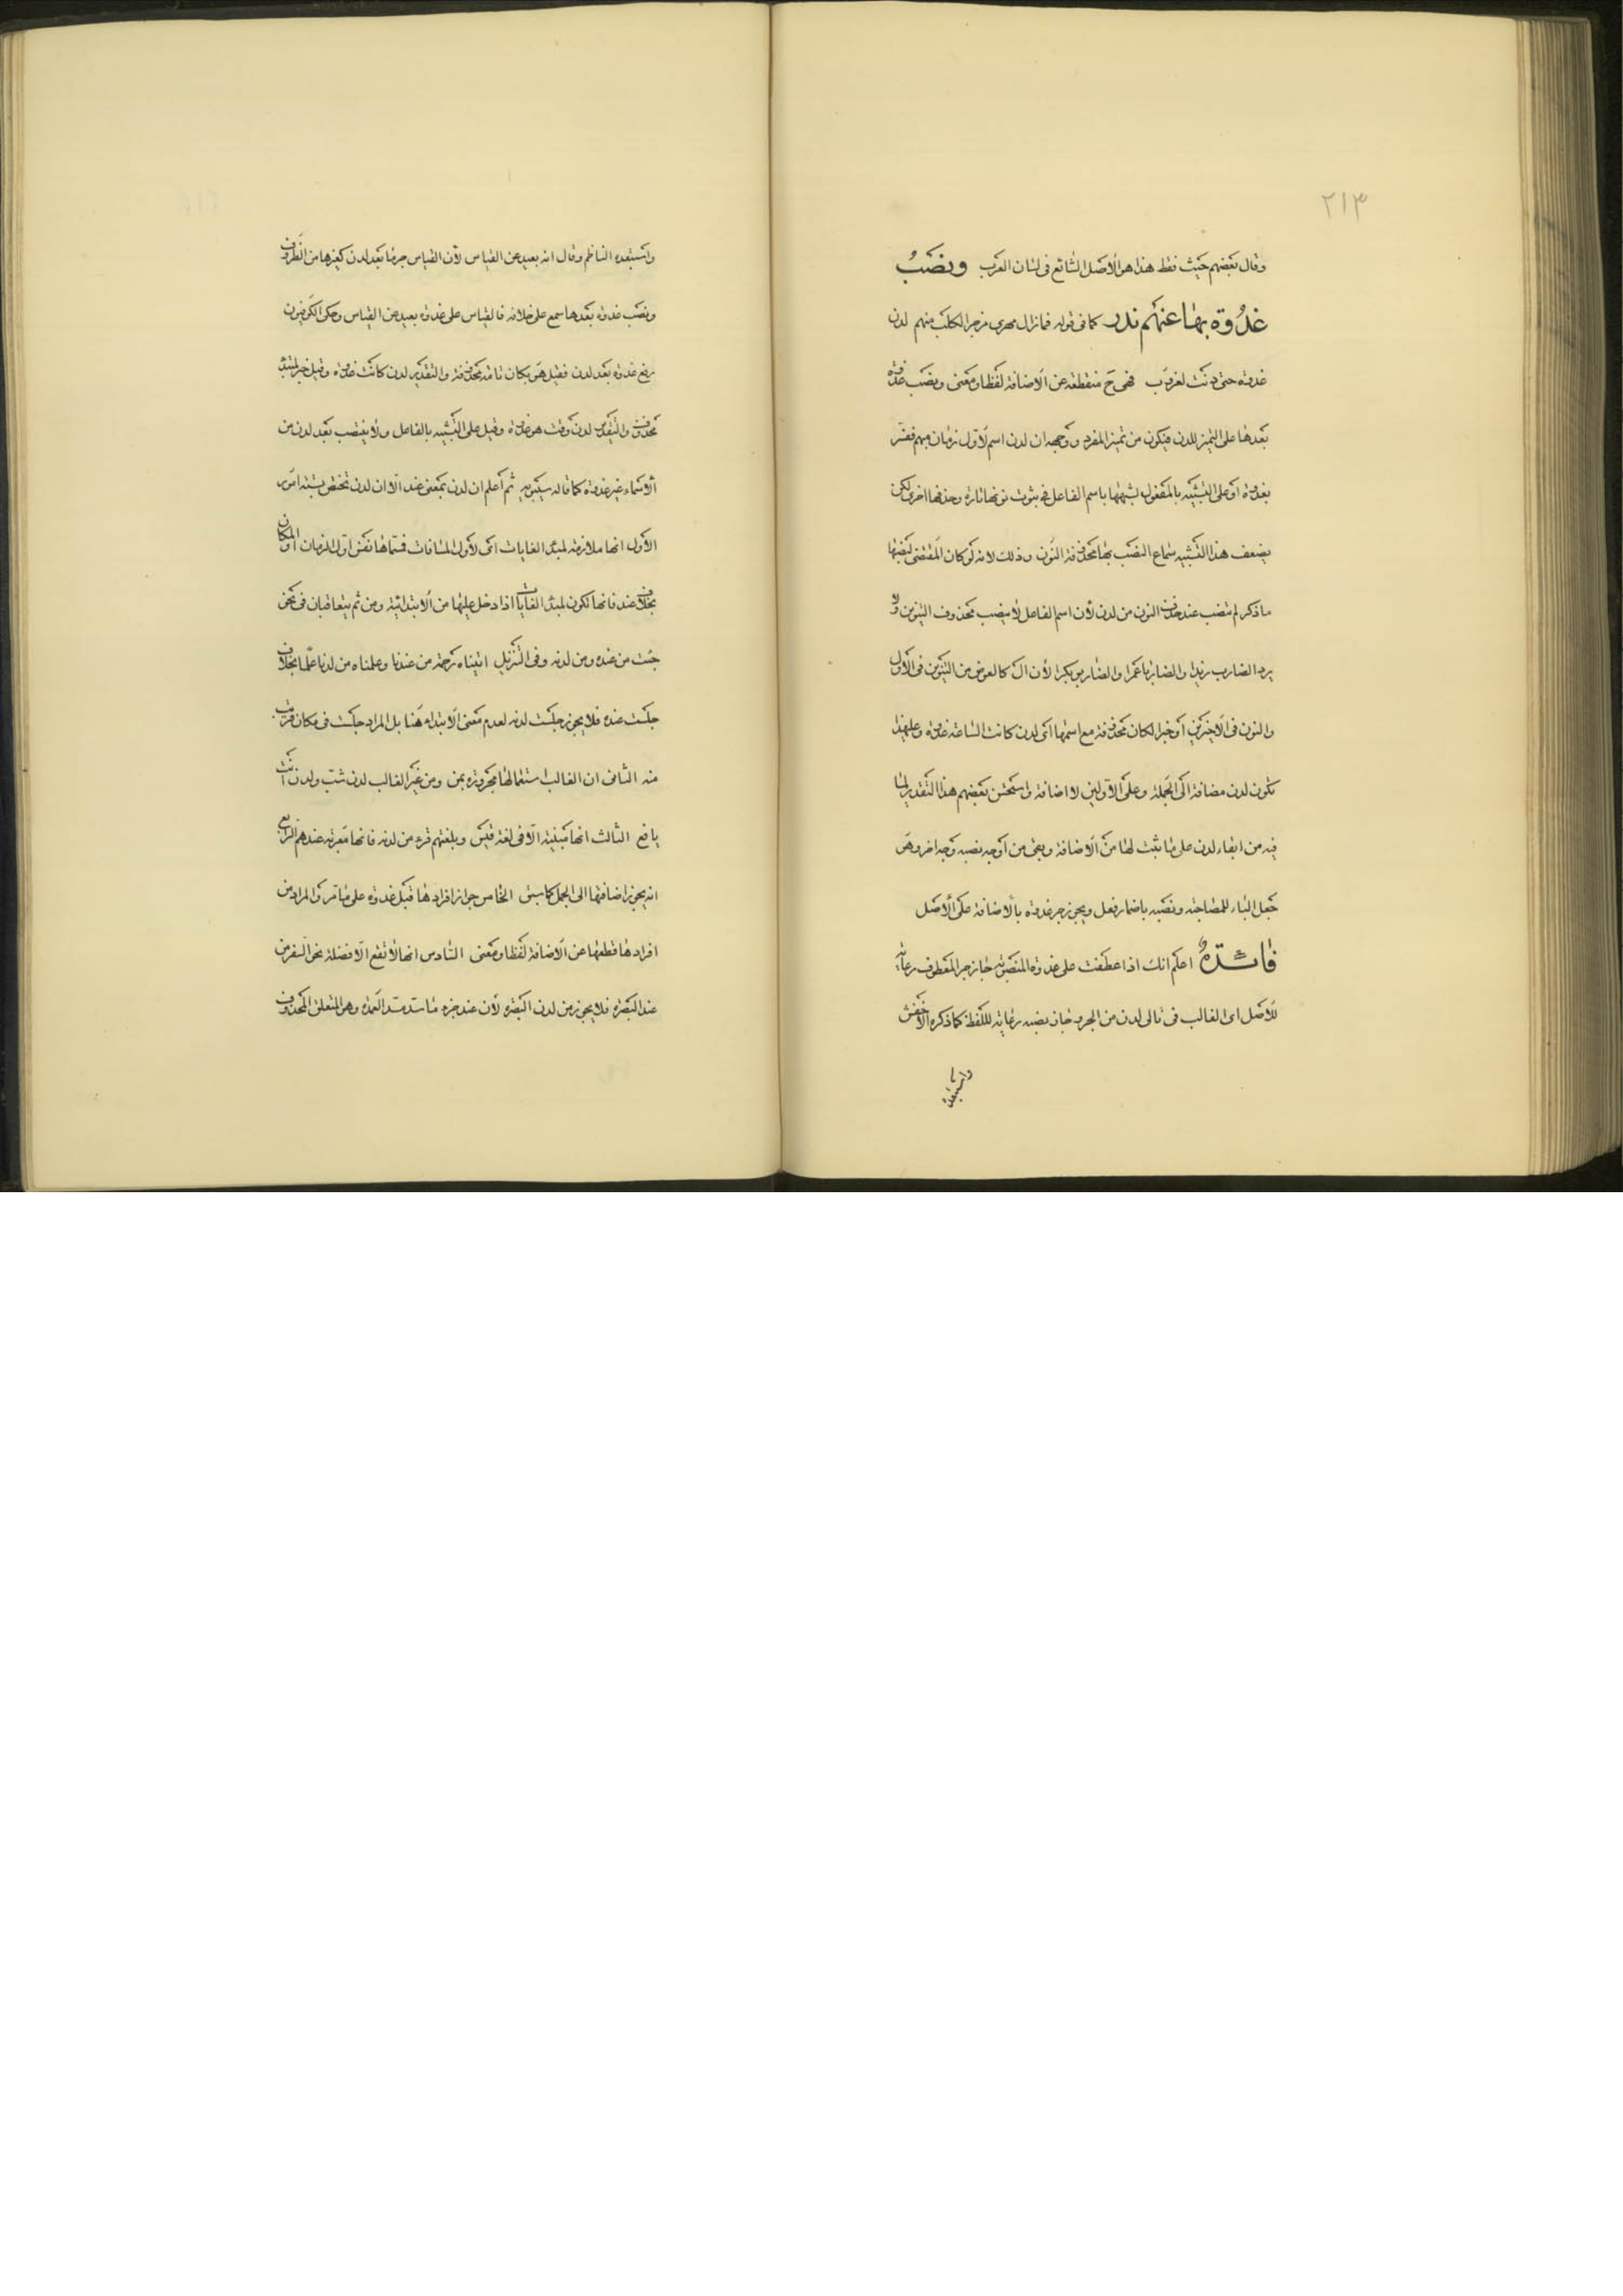 ٢١٣
وقال بعضهم حيث نقط هذا هو الأصل الشائع فى لسان العرب ونصبُ
غدُوة بها عنهم ندر كما فى قوله فما زال مهرى مزجر الكلب منهم لدن
غدوة حتى دنت لغروب فهى ح منقطعة عن الاضافة لفظا ومعنى ونصب غدوة
بعدها على التميز للدن فيكون من تميز المفرد ووجهه ان لدن اسم لاول زمان مبهم ففسر
بغدوة او على التشبيه بالمفعول لشبهها باسم الفاعل فى ثبوت نونها تارة وحذفها اخرى لكن
يضعف هذا التشبيه سماع النصب بها محذوفة النون وذلك لانه لو كان المقتضى لنصبها
ما ذكر لم تنصب عند حذف النون من لدن لأن اسم الفاعل لا ينصب محذوف التنوين ولا
يرد الضارب زيدا والضاربا عمرا والضاربو بكرا لأن ال كالعوض من التنوين فى الأول
والنون فى الاخيرين أو خبرا لكان محذوفة مع اسمها اى لدن كانت الساعة غدوة وعليهذا
تكون لدن مضافة الى الجملة وعلى الاولين لا اضافة واستحسن بعضهم هذا التقدير لما
فيه من ابقاء لدن على ما ثبت لها من الاضافة وبقى من أوجه نصبه وجه اخر وهو
جعل الباء للمصاحبة ونصبه باضمار فعل ويجوز جر غدوة بالاضافة على الأصل
فائدة اعلم انك اذا عطفت على غدوة المنصوبة جاز جر المعطوف رعاية
للأصل اى الغالب فى تالى لدن من الجر وجاز نصبه رعاية للفظ كما ذكره الأخفش
واستبعده
واستبعده الناظم وقال انه بعيد عن القياس لأن القياس جرها بعد لدن كغيرها من الظروف
ونصب غدوة بعدها سمع على خلافه فالقياس على غدوة بعيد عن القياس وحكى الكوفيون
رفع غدوة بعد لدن فقيل هو بكان تامة محذوفة والتقدير لدن كانت غدوة وقيل خبر لمبتدأ
محذوف والتقدير لدن وقت هو غدوة وقيل على التشبيه بالفاعل ولا ينتصب بعد لدن من
الأسماء غير غدوة كما قاله سيبويه ثم أعلم ان لدن بمعنى عند الا ان لدن تختص بستة امور
الأول انها ملازمة لمبدأ الغايات اى لأول المسافات فسماها نفس اول الزمان او المكان
بخلاف عند فانها تكون لمبدأ الغايات اذا دخل عليها من الابتدائية ومن ثم يتعاقبان فى نحو
جئت من عنده ومن لدنه وفى التنزيل اتيناه رحمة من عندنا وعلمناه من لدنا علما بخلاف
جلست عنده فلا يجوز جلست لدنه لعدم معنى الابتداء هنا بل المراد جلست فى مكان قريب
منه الثانى ان الغالب استعمالها مجرورة بمن ومن غير الغالب لدن شب ولدن انت
يافع الثالث انها مبنية الا فى لغة قيس وبلغتهم قرء من لدنه فانها معربة عندهم الرابع
انه يجوز اضافتها الى الجمل كما سبق الخامس جواز افرادها قبل غدوة على ما مر والمراد من
افرادها قطعها عن الاضافة لفظا ومعنى السادس انها لا تقع الا فضلة نحو السفر من
عند البصرة فلا يجوز من لدن البصرة لأن عند جزء ما سد مسد العمدة وهو المتعلق المحذوف